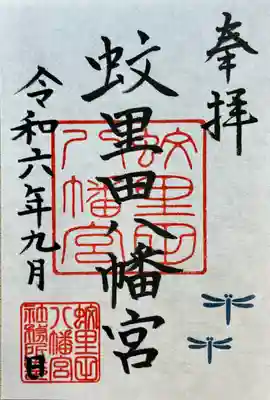 奉拝
蚊里田八幡宮
令和六年九月
日
蚊里田
八幡宮
蚊里田
八幡宮